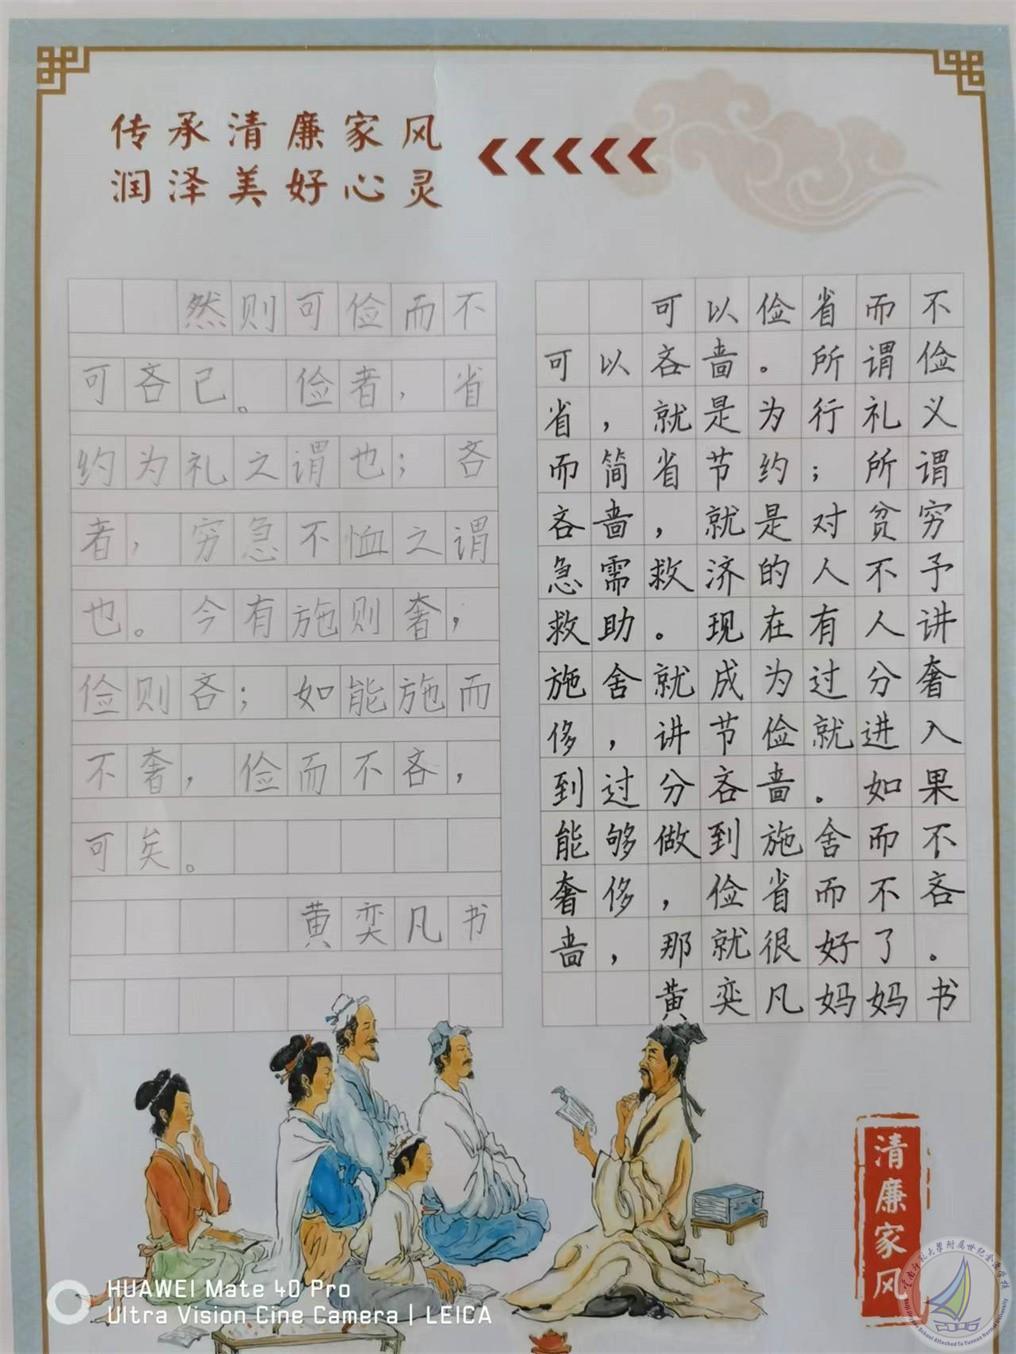 传承清廉家风
润泽美好心灵
然则可俭而不
可吝已。俭者,省
约为礼之谓也;吝
者,穷急不恤之谓
也。今有施则奢,
俭则吝;如能施而
不奢,俭而不吝,
可矣。
黄奕凡书
可以俭省而不
可以吝啬。所谓俭
省,就是为行礼义
而简省节约;所谓
吝啬,就是对贫穷
急需救济的人不予
救助。现在有人讲
施舍就成为过分奢
侈,讲节俭就进入
到过分吝啬。如果
能够做到施舍而不
奢侈,俭省而不吝
啬,那就很好了。
黄奕凡妈妈书
清廉家风
HUAWEI Mate 40 Pro
Ultra Vision Cine Camera | LEICA